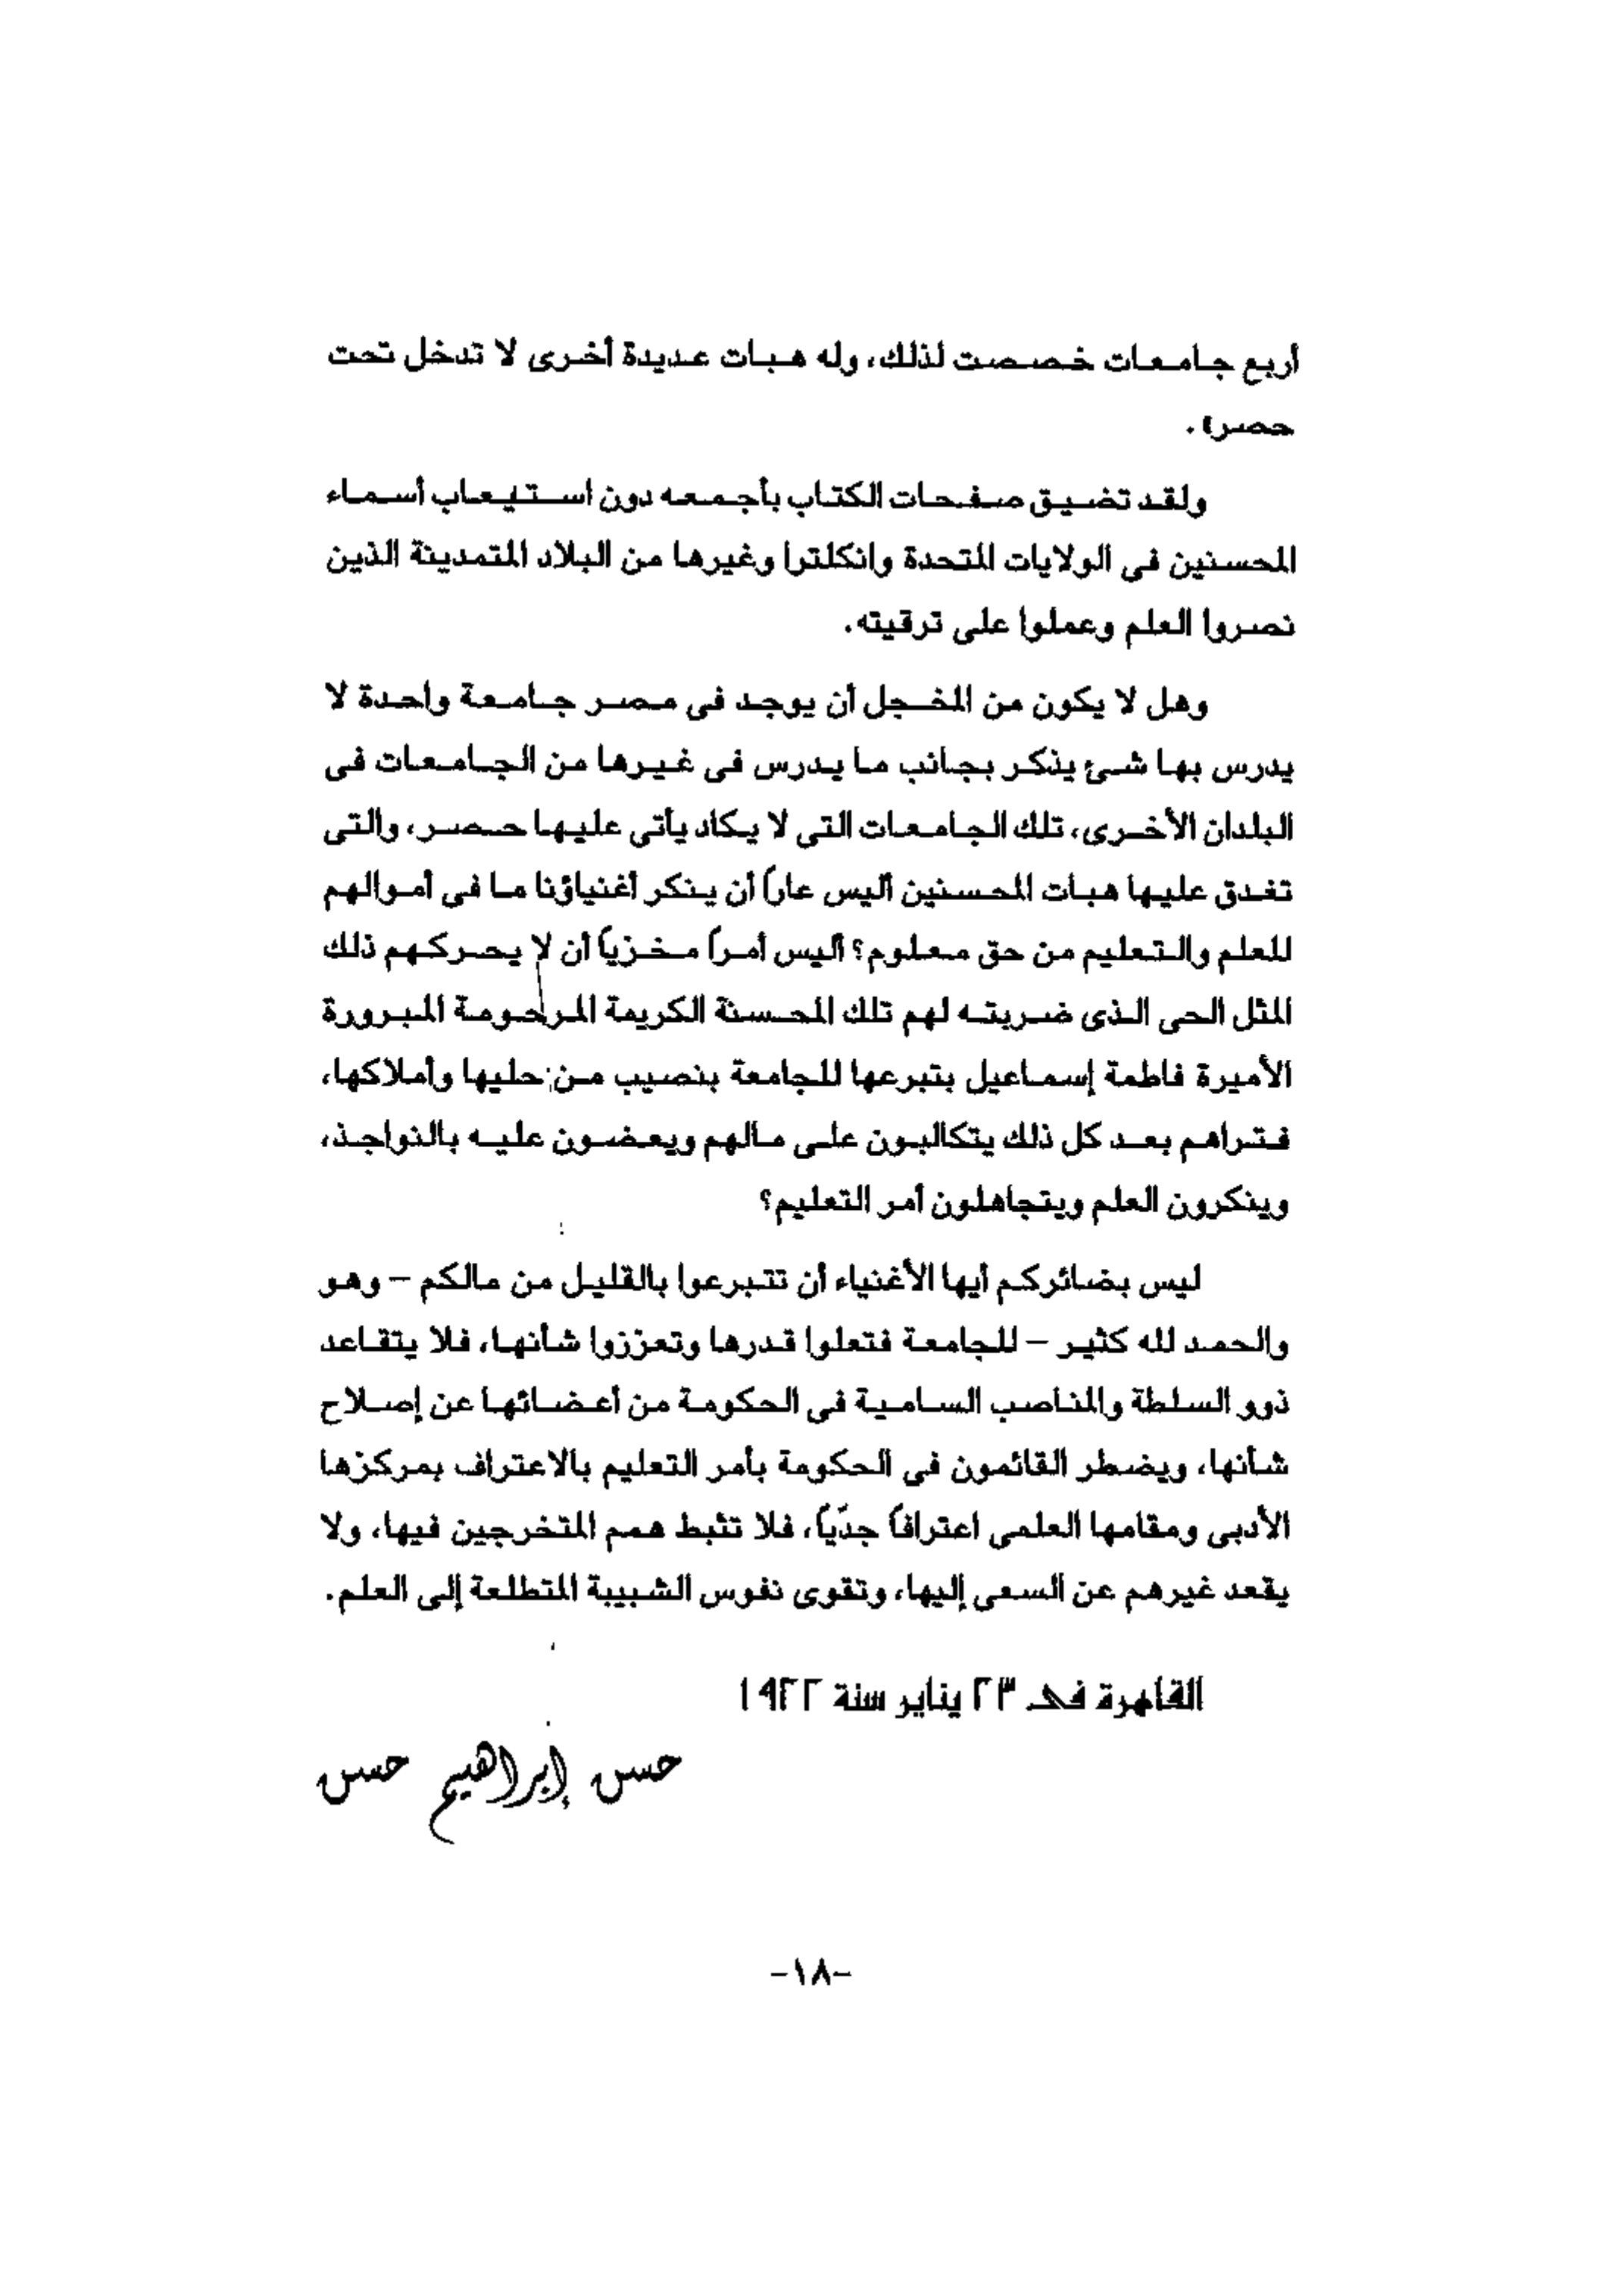 أربع جامعات خصصت لذلك، وله هبات عديدة أخرى لا تدخل تحت
حصر» .
ولقد تضيق صفحات الكتاب بأجمعه دون استيعاب أسماء
المحسنين فى الولايات المتحدة وانكلترا وغيرها من البلاد المتمدينة الذين
نصروا العلم وعملوا على ترقيته.
وهل لا يكون من المخجل أن يوجد فى مصر جامعة واحدة لا
يدرس بها شئ يذكر بجانب ما يدرس فى غيرها من الجامعات فى
البلدان الأخرى، تلك الجامعات التى لا يكاد يأتى عليها حصر، والتى
تغدق عليها هبات المحسنين أليس عاراً أن ينكر أغنياؤنا ما فى أموالهم
للعلم والتعليم من حق معلوم؟ أليس أمراً مخزياً أن لا يحركهم ذلك
المثل الحى الذى ضربته لهم تلك المحسنة الكريمة المرحومة المبرورة
الأميرة فاطمة إسماعيل بتبرعها للجامعة بنصيب من حليها وأملاكها،
فتراهم بعد كل ذلك يتكالبون على مالهم ويعضون عليه بالنواجذ،
وينكرون العلم ويتجاهلون أمر التعليم؟
ليس بضائركم أيها الأغنياء أن تتبرعوا بالقليل من مالكم – وهو
والحمد لله كثير – للجامعة فتعلوا قدرها وتعززوا شأنها، فلا يتقاعد
ذوو السلطة والمناصب السامية فى الحكومة من أعضائها عن إصلاح
شأنها، ويضطر القائمون فى الحكومة بأمر التعليم بالاعتراف بمركزها
الأدبى ومقامها العلمى اعترافاً جدّياً، فلا تثبط همم المتخرجين فيها، ولا
يقعد غيرهم عن السعى إليها، وتقوى نفوس الشبيبة المتطلعة إلى العلم.
القاهرة فى ٢٣ يناير سنة ١٩٢٢
حسن إبراهيم حسن
-١٨-